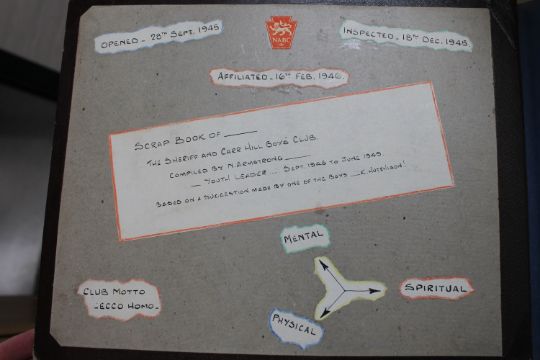 OPENED - 28TH SEPT. 1945
NABC
INSPECTED - 18TH DEC. 1945
AFFILIATED - 16TH FEB. 1946.
SCRAP BOOK OF
THE SHERIFF AND CARR HILL BOYS' CLUB.
COMPILED BY N. ARMSTRONG
- YOUTH LEADER ... SEPT. 1946 TO JUNE 1949.
BASED ON A SUGGESTION MADE BY ONE OF THE BOYS - K. HUTCHISON!
MENTAL
CLUB MOTTO
-ECCO HOMO-
SPIRITUAL
PHYSICAL